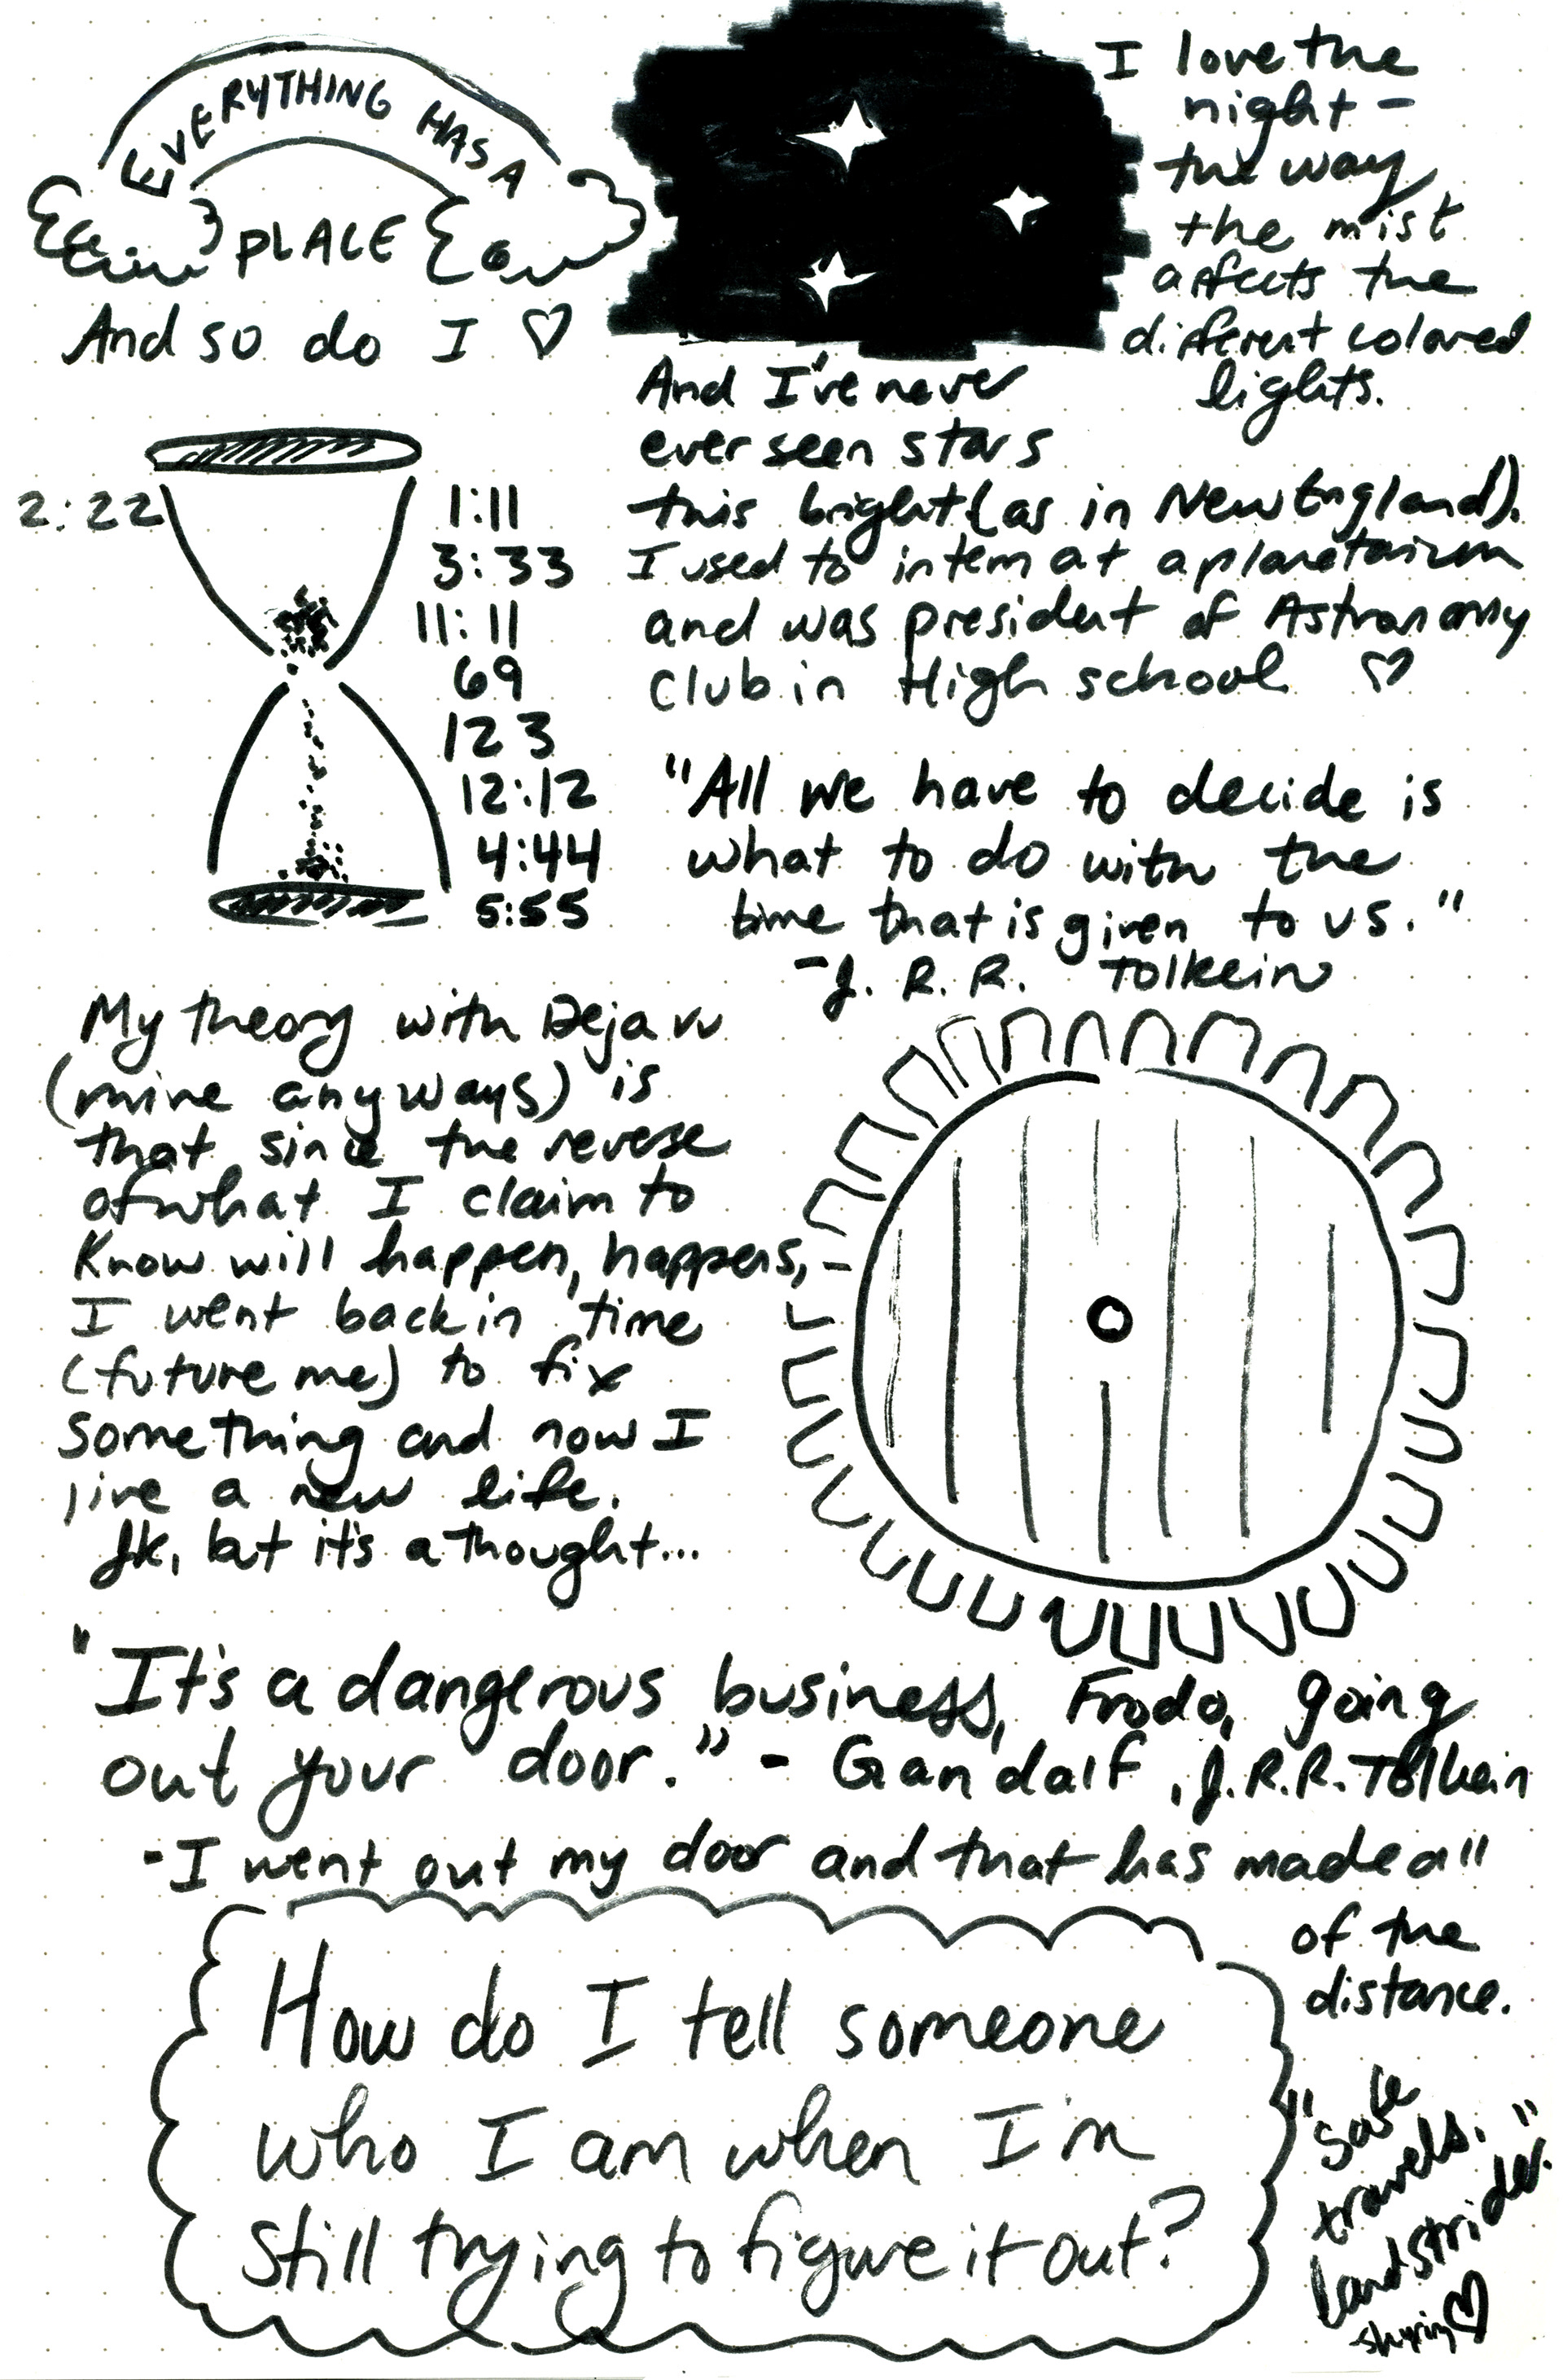 EVERYTHING HAS A
PLACE
And so do I ♡
I love the
night -
the way
the mist
affects the
different colored
lights.
And I've never
ever seen stars
this bright (as in New England).
I used to intern at a planetarium
and was president of Astronomy
club in High school ♡
2:22
1:11
3:33
11:11
69
123
12:12
4:44
5:55
"All we have to decide is
what to do with the
time that is given to us."
-J. R. R. Tolkein
My theory with Deja vu
(mine anyways) is
that since the reverse
of what I claim to
Know will happen, happens,
I went back in time
(future me) to fix
something and now I
live a new life.
Jk, but it's a thought...
"It's a dangerous business, Frodo, going
out your door." - Gandalf, J.R.R. Tolkein
-I went out my door and that has made all
of the
distance.
How do I tell someone
who I am when I'm
still trying to figure it out?
"Safe
travels."
landstrider.
♡